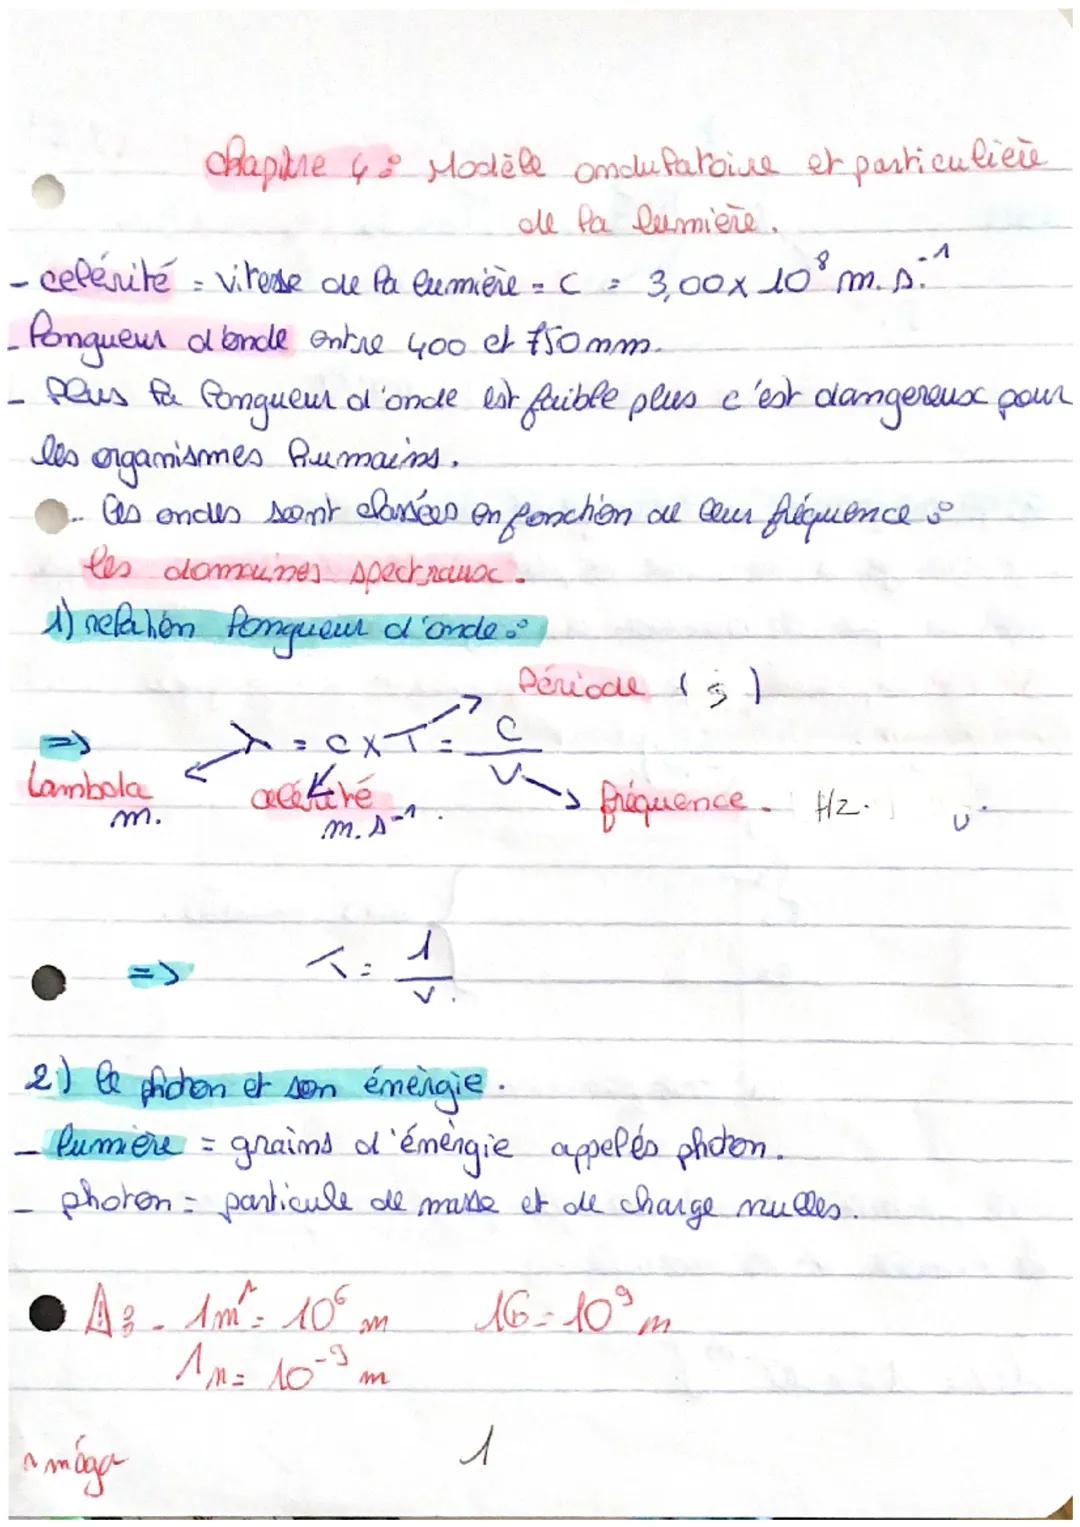 Chapitre 4 : Modèle ondulatoire et particulière
de la lumière.
- celérité = vitesse de la lumière = C = 3,00 x 10⁸ m.s.⁻¹
- longueur d'onde entre 400 et 750 nm.
- Plus la longueur d'onde est faible plus c'est dangereux pour
les organismes humains.
- les ondes sont classées en fonction de leur fréquence :
les domaines spectraux.
1) relation longueur d'onde :
Période (s)
=> λ = c x T = c/ν
Lambda
m.
célérité
m.s⁻¹.
fréquence. Hz.
ν.
=> T = 1/ν.
2) le photon et son énèrgie.
- lumière = grains d'énèrgie appelés photon.
- photon = particule de masse et de charge nulles.
⚠ : - 1 m^ = 10⁶ m 1G = 10⁹ m
1n = 10⁻⁹ m
^ méga
1